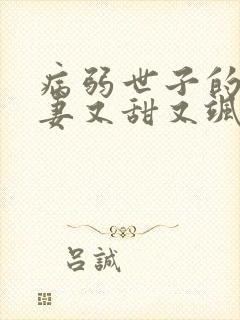 病弱世子的
妻又甜又飒
吕誠